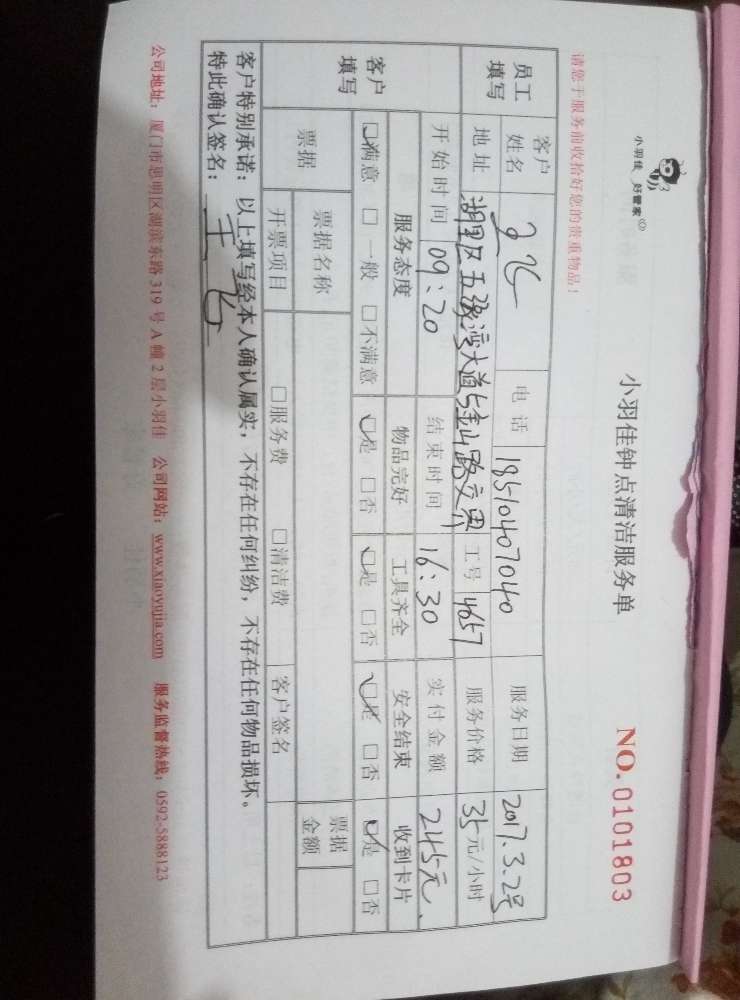 小羽佳 好管家
小羽佳钟点清洁服务单
NO.0101803
请您于服务前收拾好您的贵重物品！
员工填写 客户姓名 王飞 电话 18510407040 服务日期 2017.3.2号
地址 湖里区五缘湾大道与金山路交界 工号 4657 服务价格 35元/小时
开始时间 09:20 结束时间 16:30 实付金额 245元
客户填写 服务态度 物品完好 工具齐全 安全结束 收到卡片
☑满意 □一般 □不满意 ☑是 □否 ☑是 □否 ☑是 □否 ☑是 □否
票据 票据名称 票据金额
开票项目 □服务费 □清洁费 客户签名
客户特别承诺：以上填写经本人确认属实，不存在任何纠纷，不存在任何物品损坏。
特此确认签名：王飞
公司地址：厦门市思明区湖滨东路319号A幢2层小羽佳 公司网站：www.xiaoyujia.com 服务监督热线：0592-5888123